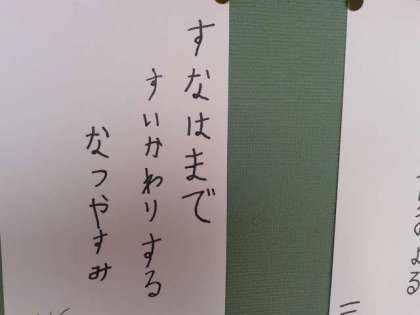 すなはまで
すいかわりする
なつやすみ